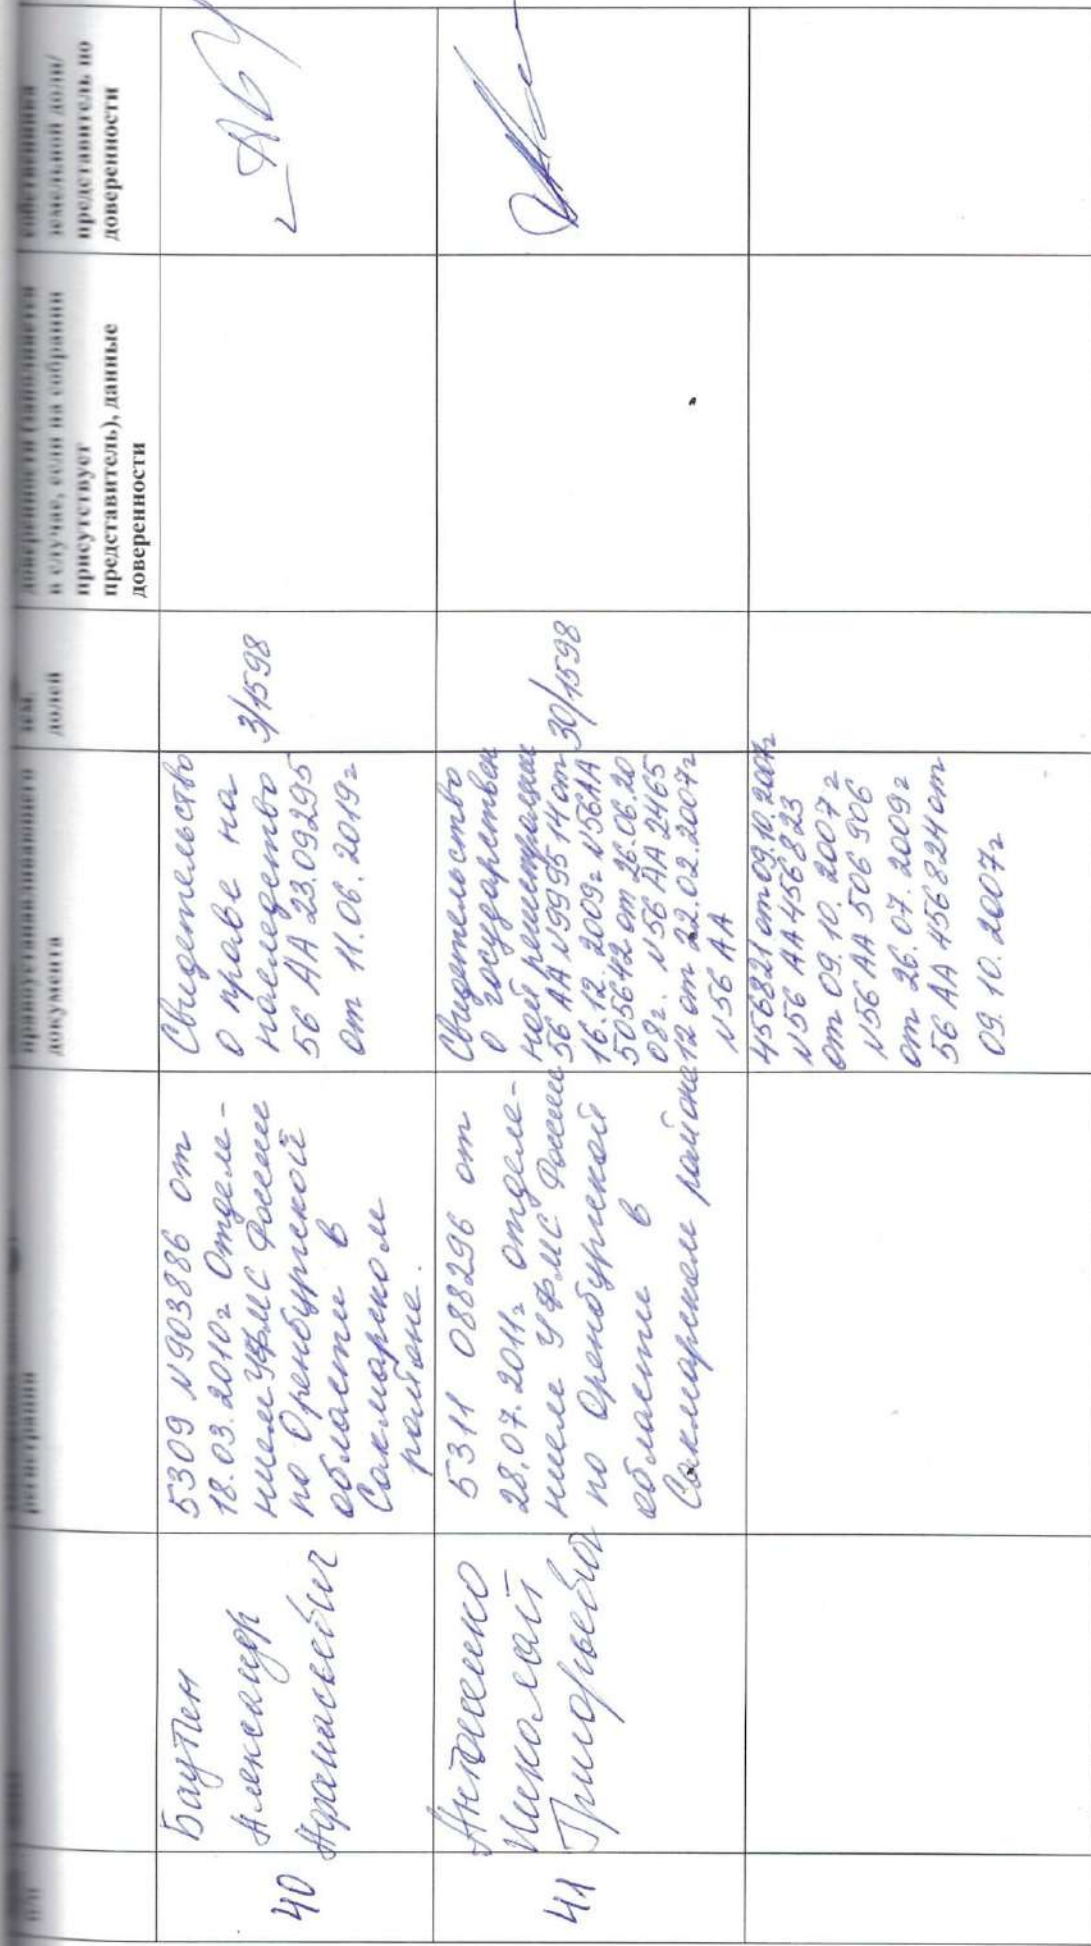 п/п
регистрации
правоустанавливающего
документа
зем.
долей
доверенности (заполняется
в случае, если на собрании
присутствует
представитель), данные
доверенности
собственника
земельной доли/
представитель по
доверенности
40
Баутин
Александр
Афанасьевич
5309 №903886 от
18.03.2010г Отделе-
нием УФМС России
по Оренбургской
области в
Сакмарском
районе.
Свидетельство
о праве на
наследство
56 АА 23.09295
от 11.06.2019г
3/1598
41
Антоненко
Николай
Григорьевич
5311 088296 от
28.07.2011г отделе-
нием УФМС России
по Оренбургской
области в
Сакмарском районе
Свидетельство
о государствен
ной регистрации
56 АА №999514 от
16.12.2009г №56АА
505642 от 26.06.20
08г. №56 АА 2465
12 от 22.02.2007г
№56 АА
30/1598
456821 от 09.10.2007г
№56 АА 456823
от 09.10.2007г
№56 АА 506906
от 26.07.2009г
56 АА 456824 от
09.10.2007г